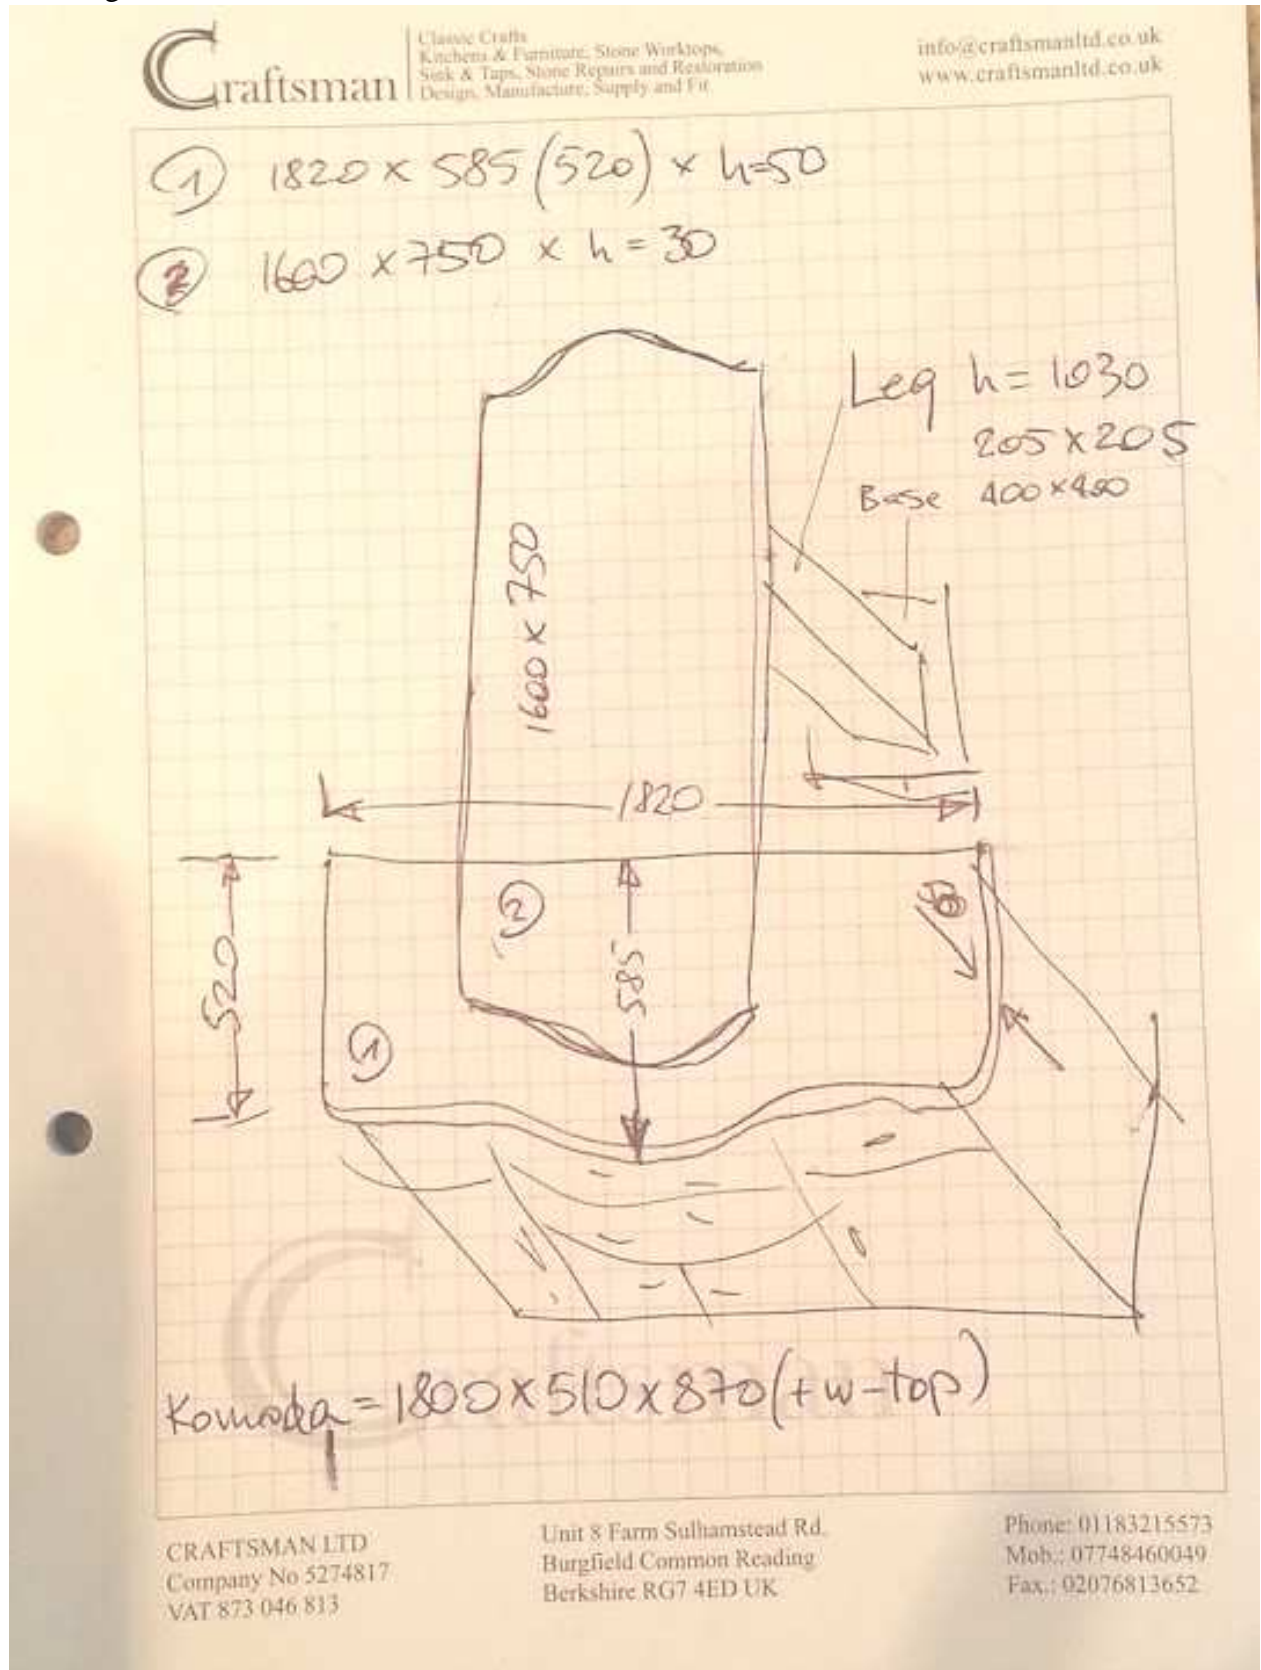 Craftsman
Classic Crafts
Kitchens & Furniture, Stone Worktops,
Sink & Taps, Stone Repairs and Restoration
Design, Manufacture, Supply and Fit
info@craftsmanltd.co.uk
www.craftsmanltd.co.uk
1 1820 x 585 (520) x h=50
2 1600 x 750 x h = 30
Leg h = 1030
205 x 205
Base 400 x 400
1600 x 750
1820
2
50
520
585
1
Komoda = 1800 x 510 x 870 (+ w-top)
CRAFTSMAN LTD
Company No 5274817
VAT 873 046 813
Unit 8 Farm Sulhamstead Rd.
Burgfield Common Reading
Berkshire RG7 4ED UK
Phone: 01183215573
Mob.: 07748460049
Fax.: 02076813652